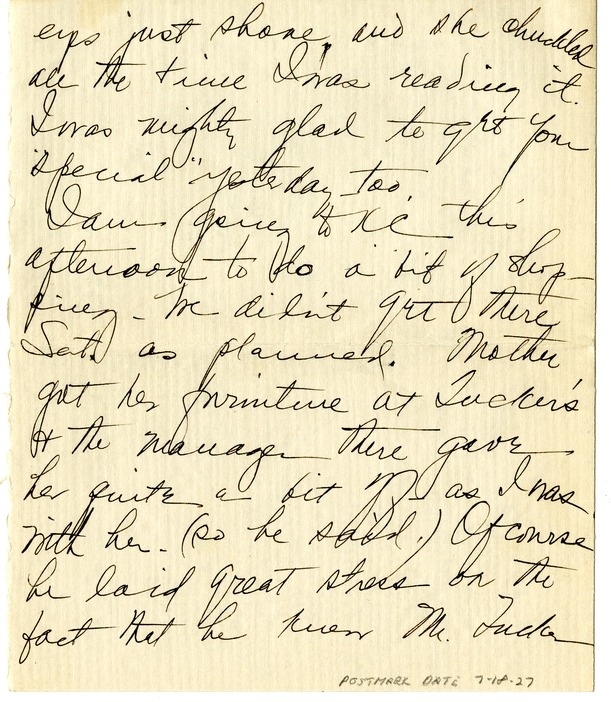 eyes just shone and she chuckled
all the time I was reading it.
I was mighty glad to get your
"special" yesterday too.
I am going to KC this
afternoon to do a bit of shop-
ping - We didn't get there
Sat. as planned. Mother
got her furniture at Tucker's
& the manager there gave
her quite a bit off as I was
with her. (so he said.) Of course
he laid great stress on the
fact that he knew Mr. Tucker
POSTMARK DATE 7-18-27